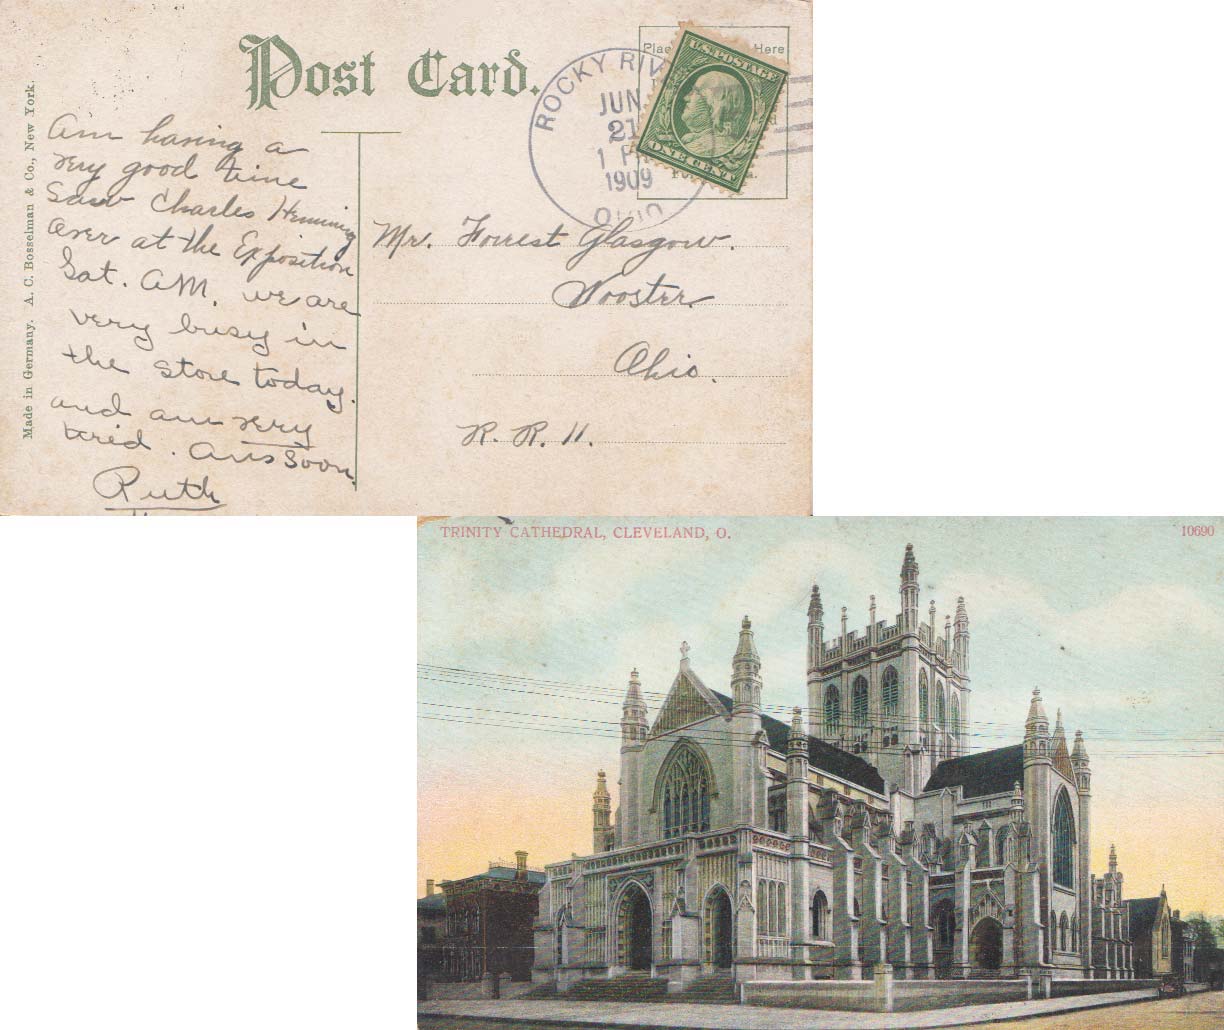 Post Card.
Place Here
ROCKY RIV
JUN
21
1 P
1909
OHIO
U.S. POSTAGE
ONE CENT
Made in Germany. A. C. Bosselman & Co., New York.
Am having a
very good time
Saw Charles Henning
over at the Exposition
Sat. A.M. we are
very busy in
the store today.
and am very
tired. Ans soon.
Ruth
Mr. Forrest Glasgow.
Wooster.
Ohio.
R. R. 11.
TRINITY CATHEDRAL, CLEVELAND, O.
10690